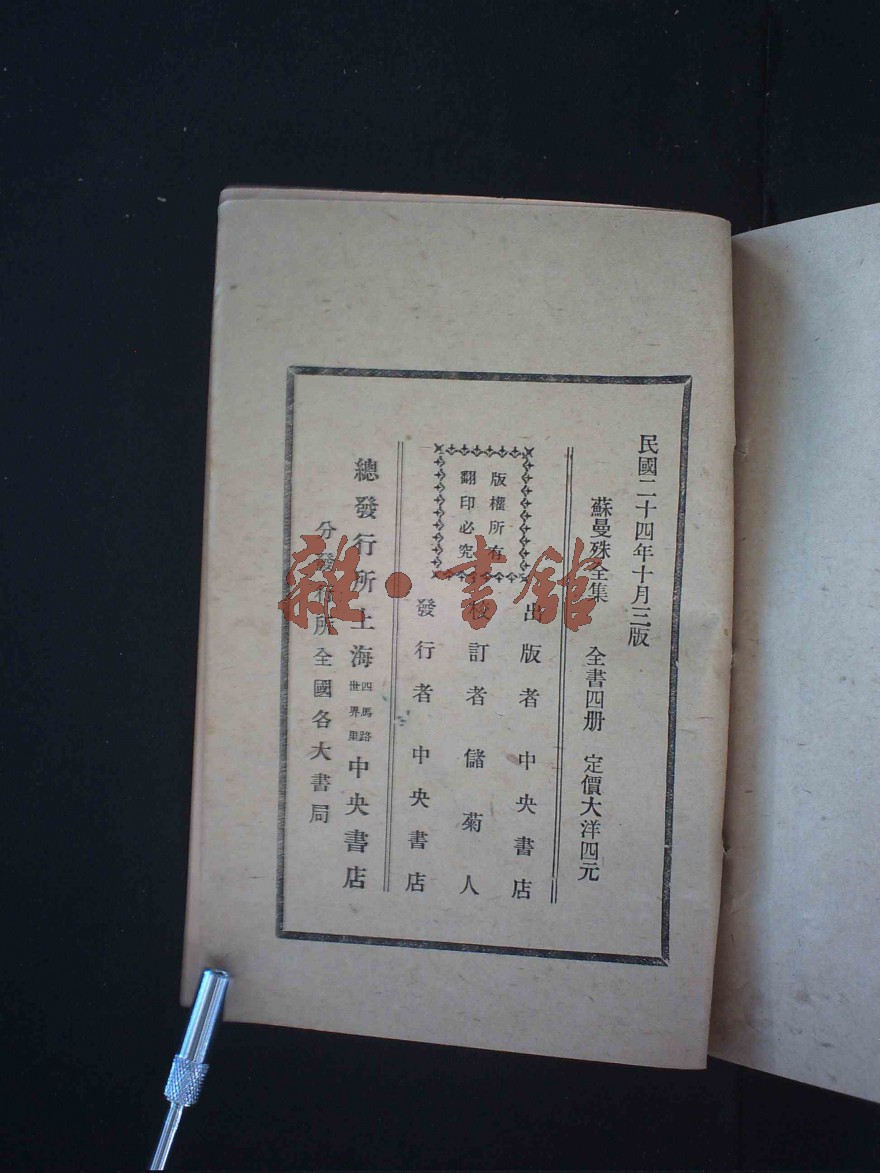 民國二十四年十月三版
蘇曼殊全集　全書四册　定價大洋四元
版權所有
翻印必究
出版者　中央書店
校訂者　儲菊人
發行者　中央書店
總發行所上海四馬路世界里中央書店
分發行所全國各大書局
雜·書館